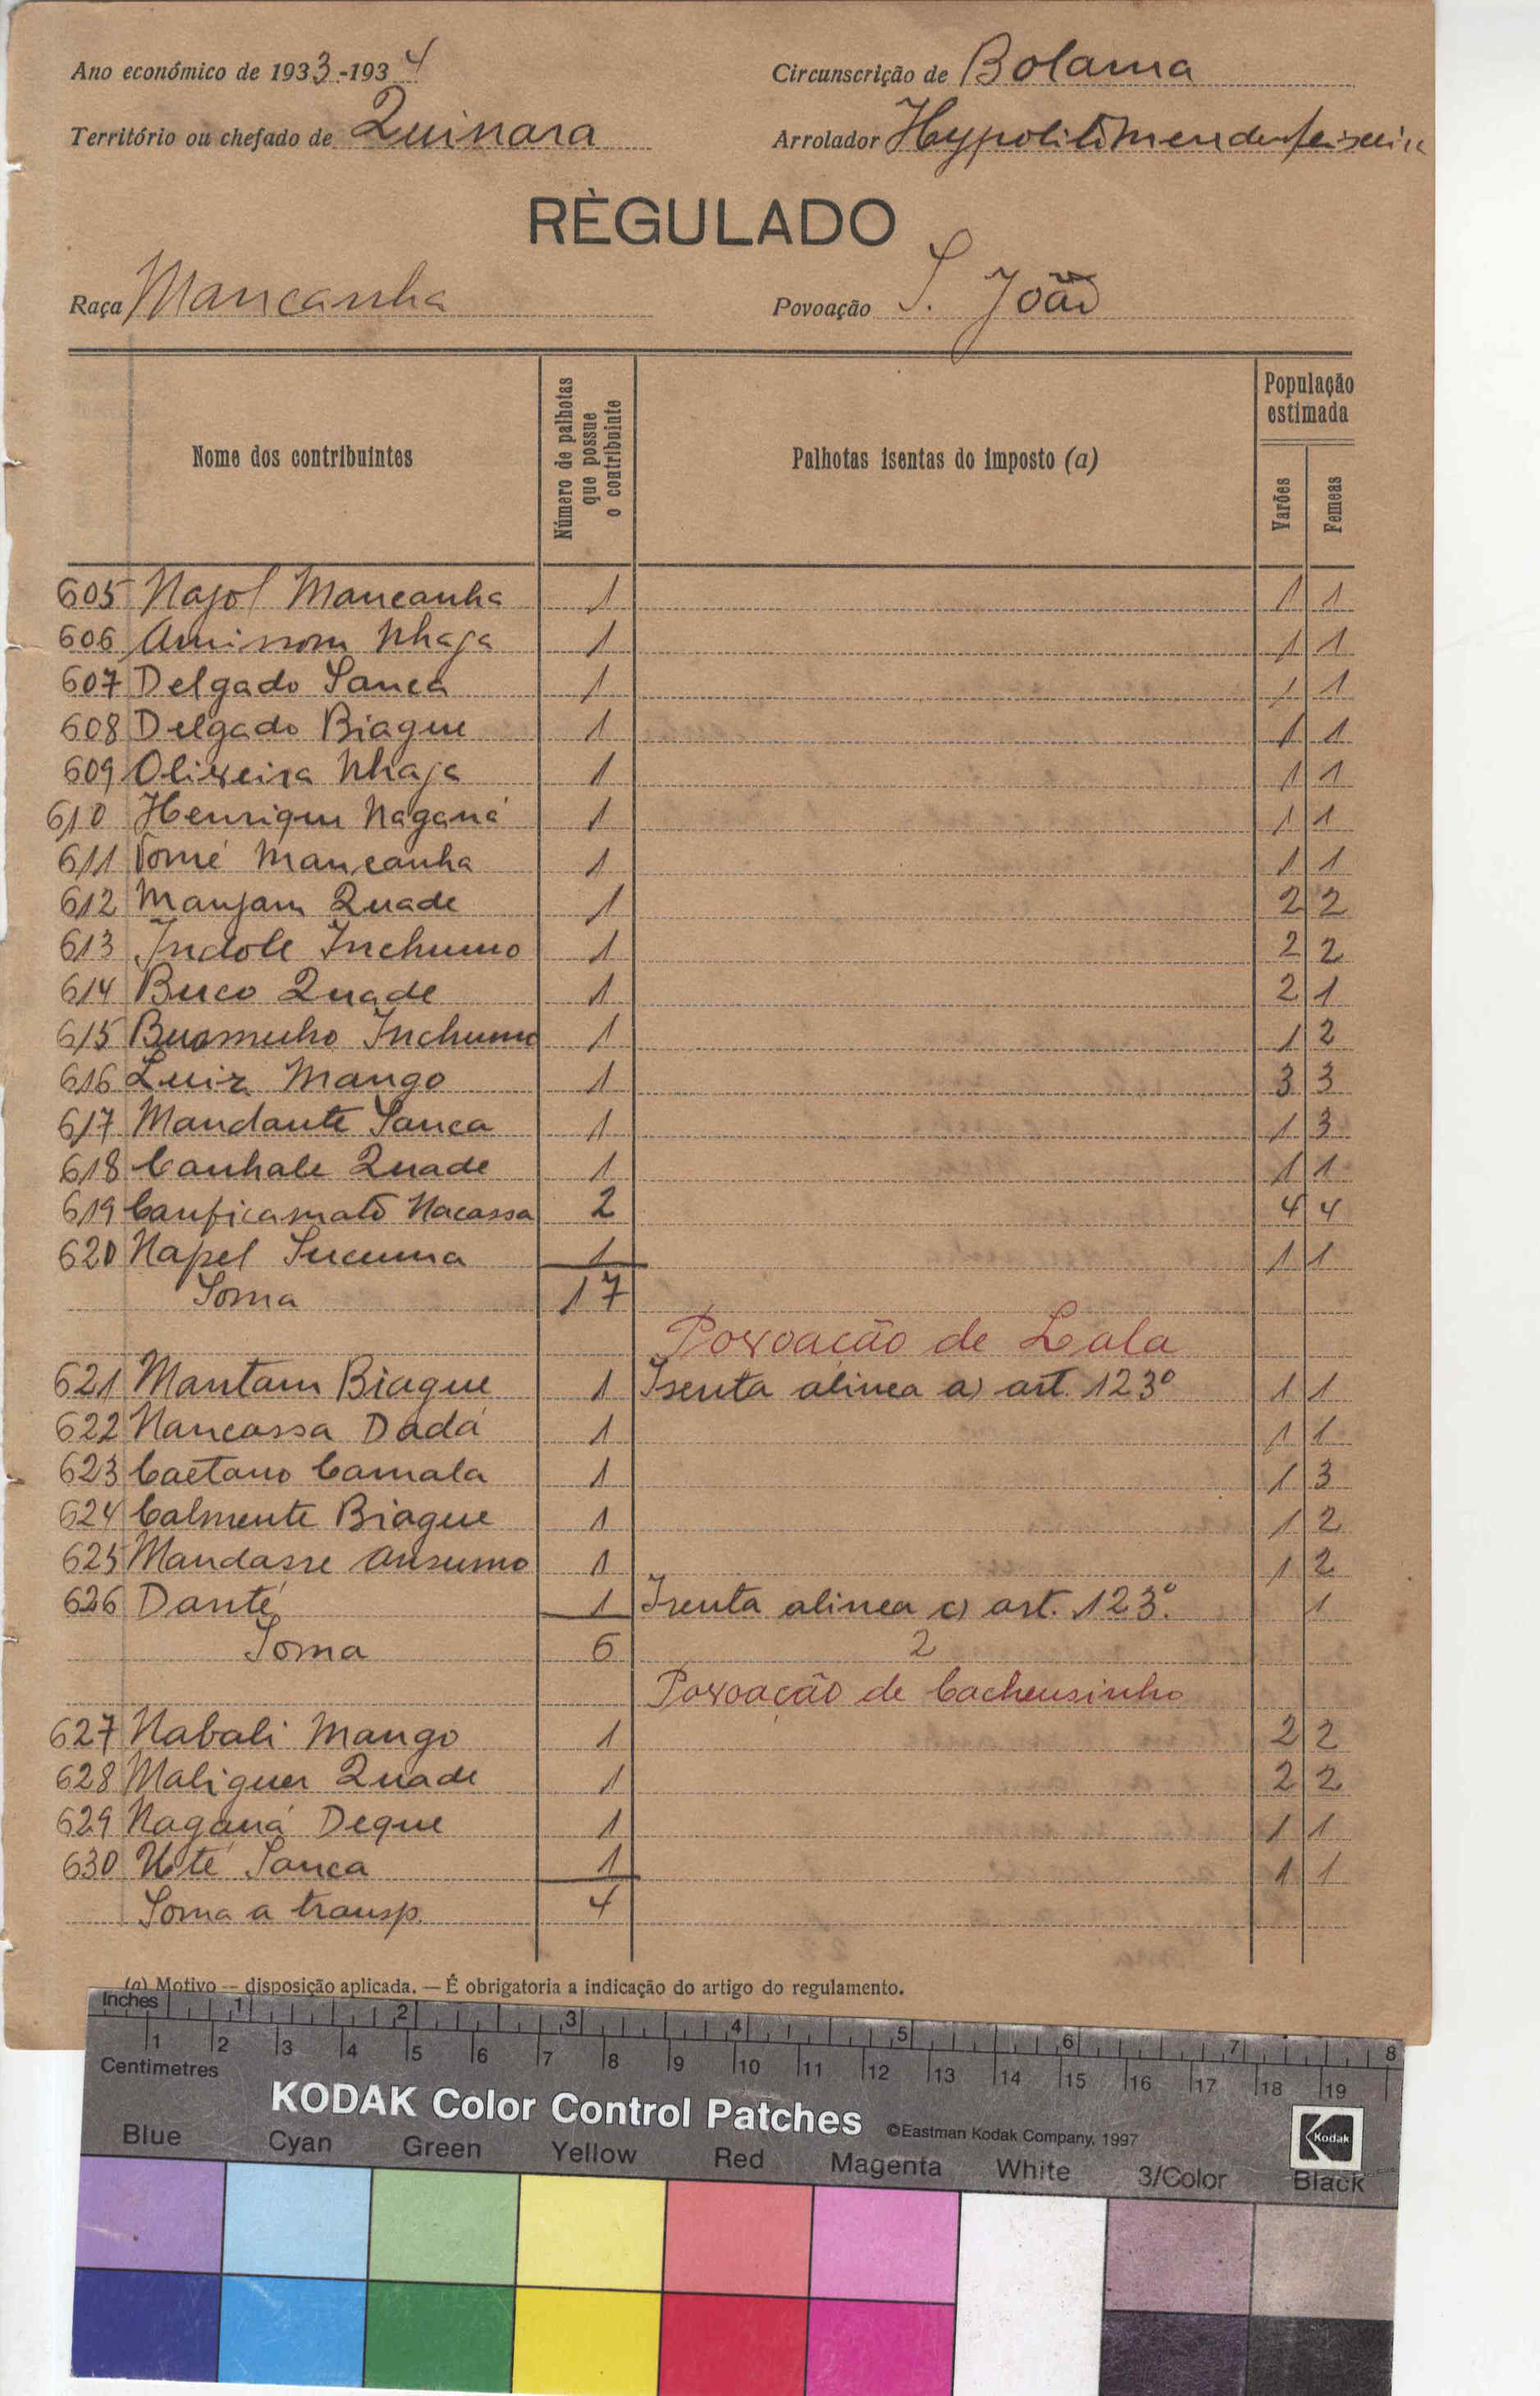 Ano económico de 1933-1934
Circunscrição de Bolama
Território ou chefado de Quinara
Arrolador Hypolito Mendes
RÈGULADO
Raça Mancanha
Povoação S. João
Nome dos contribuintes
Número de palhotas que possue o contribuinte
Palhotas isentas do imposto (a)
População estimada
Varões
Femeas
605 Najol Mancanha 1 1 1
606 Nhaja 1 1 1
607 Delgado Sanca 1 1 1
608 Delgado Biague 1 1 1
609 Oliveira Nhaja 1 1 1
610 Henrique Naganá 1 1 1
611 Tomé Mancanha 1 1 1
612 Manjam Quade 1 2 2
613 Indole Inchumo 1 2 2
614 Buco Quade 1 2 1
615 Inchumo 1 1 2
616 Luiz Mango 1 3 3
617 Mandante Sanca 1 1 3
618 Canhale Quade 1 1 1
619 Canficamatô Nacassa 2 4 4
620 Napel Sucuma 1 1 1
Soma 17
Povoação de Lala
621 Mantam Biague 1 Isenta alinea a) art. 123º 1 1
622 Nancassa Dadá 1 1 1
623 Caetano Camala 1 1 3
624 Calmente Biague 1 1 2
625 Mandasse Ansumo 1 1 2
626 Danté 1 Isenta alinea c) art. 123º. 1
Soma 6 2
Povoação de Cacheusinho
627 Nabali Mango 1 2 2
628 Maliguer Quade 1 2 2
629 Naganá Deque 1 1 1
630 Sanca 1 1 1
Soma a transp. 4
(a) Motivo — disposição aplicada. — É obrigatoria a indicação do artigo do regulamento.
Inches 1 2 3 4 5 6 7 8
1 2 3 4 5 6 7 8 9 10 11 12 13 14 15 16 17 18 19
Centimetres
KODAK Color Control Patches ©Eastman Kodak Company, 1997 Kodak
Blue Cyan Green Yellow Red Magenta White 3/Color Black